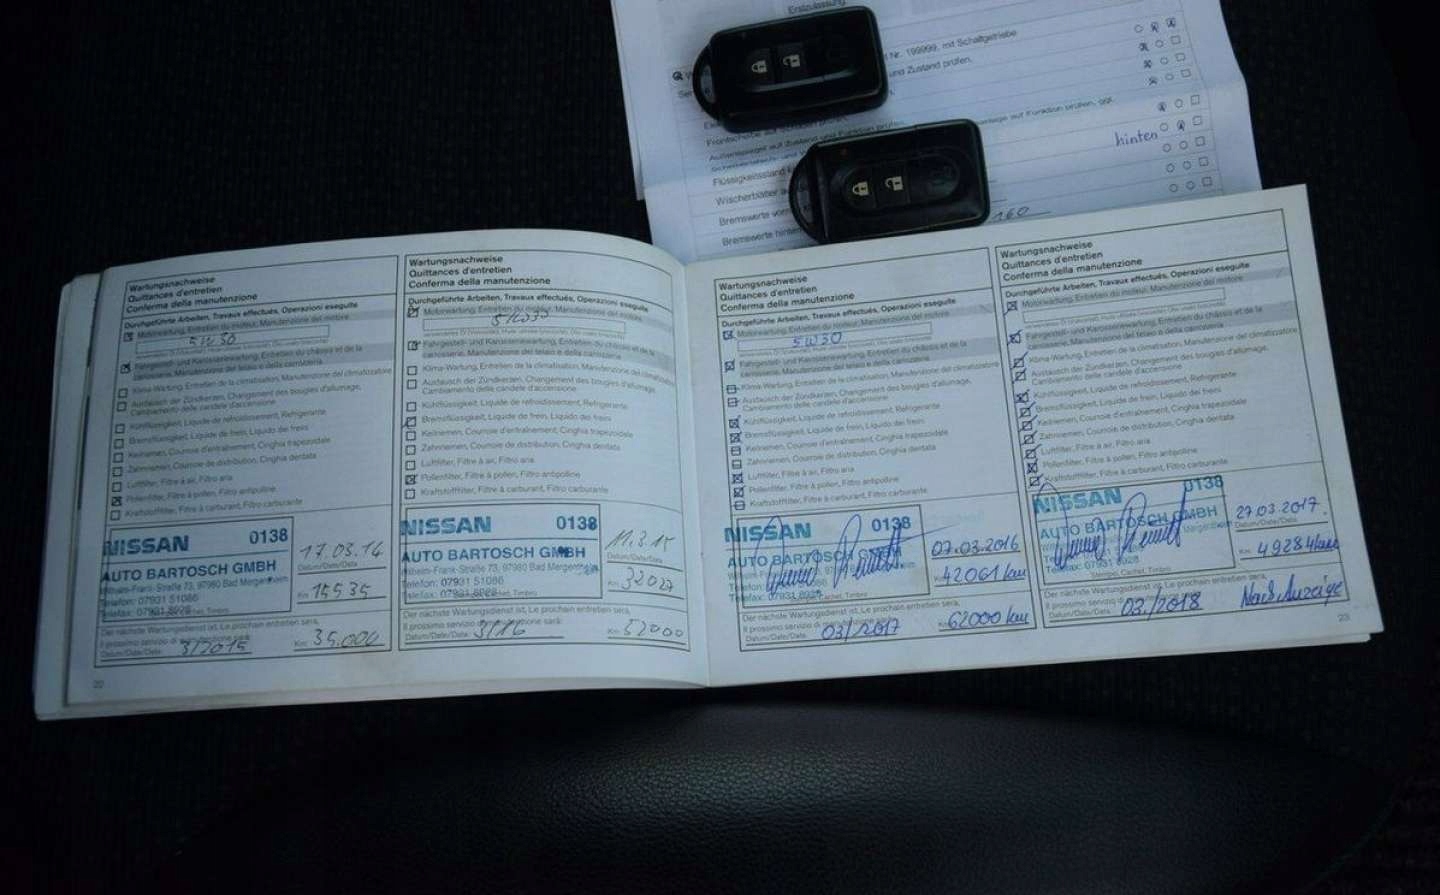 Erstzulassung
Nr. 199999, mit Schaltgetriebe
und Zustand prüfen.
Frontscheibe auf
Außenspiegel auf Zustand und Funktion prüfen.
auf Funktion prüfen, ggf.
Flüssigkeitsstand
Wischerblätter
hinten
Bremswerte
Bremswerte hinten
160
Wartungsnachweise
Quittances d'entretien
Conferma della manutenzione
Durchgeführte Arbeiten, Travaux effectués, Operazioni eseguite
Motorwartung, Entretien du moteur, Manutenzione del motore
5W30
Fahrgestell- und Karosseriewartung, Entretien du châssis et de la
carrosserie, Manutenzione del telaio e della carrozzeria
Klima-Wartung, Entretien de la climatisation, Manutenzione del climatizzatore
Austausch der Zündkerzen, Changement des bougies d'allumage,
Cambiamento delle candele d'accensione
Kühlflüssigkeit, Liquide de refroidissement, Refrigerante
Bremsflüssigkeit, Liquide de frein, Liquido dei freni
Keilriemen, Courroie d'entraînement, Cinghia trapezoidale
Zahnriemen, Courroie de distribution, Cinghia dentata
Luftfilter, Filtre à air, Filtro aria
Pollenfilter, Filtre à pollen, Filtro antipolline
Kraftstofffilter, Filtre à carburant, Filtro carburante
NISSAN 0138
AUTO BARTOSCH GMBH
Wilhelm-Frank-Straße 73, 97980 Bad Mergentheim
Telefon: 07931 51086
Telefax: 07931 8928
17.03.14
Datum/Date/Data
Km 15535
Der nächste Wartungsdienst ist, Le prochain entretien sera,
Il prossimo servizio di manutenzione sarà:
Datum/Date/Data: 3/2015 Km: 35.000
22
Wartungsnachweise
Quittances d'entretien
Conferma della manutenzione
Durchgeführte Arbeiten, Travaux effectués, Operazioni eseguite
Motorwartung, Entretien du moteur, Manutenzione del motore
5W30
Fahrgestell- und Karosseriewartung, Entretien du châssis et de la
carrosserie, Manutenzione del telaio e della carrozzeria
Klima-Wartung, Entretien de la climatisation, Manutenzione del climatizzatore
Austausch der Zündkerzen, Changement des bougies d'allumage,
Cambiamento delle candele d'accensione
Kühlflüssigkeit, Liquide de refroidissement, Refrigerante
Bremsflüssigkeit, Liquide de frein, Liquido dei freni
Keilriemen, Courroie d'entraînement, Cinghia trapezoidale
Zahnriemen, Courroie de distribution, Cinghia dentata
Luftfilter, Filtre à air, Filtro aria
Pollenfilter, Filtre à pollen, Filtro antipolline
Kraftstofffilter, Filtre à carburant, Filtro carburante
NISSAN 0138
AUTO BARTOSCH GMBH
Wilhelm-Frank-Straße 73, 97980 Bad Mergentheim
Telefon: 07931 51086
Telefax: 07931 8928
11.3.15
Datum/Date/Data
Km 32027
Der nächste Wartungsdienst ist, Le prochain entretien sera,
Il prossimo servizio di manutenzione sarà:
Datum/Date/Data: 3/16 Km: 52000
Wartungsnachweise
Quittances d'entretien
Conferma della manutenzione
Durchgeführte Arbeiten, Travaux effectués, Operazioni eseguite
Motorwartung, Entretien du moteur, Manutenzione del motore
5W30
Fahrgestell- und Karosseriewartung, Entretien du châssis et de la
carrosserie, Manutenzione del telaio e della carrozzeria
Klima-Wartung, Entretien de la climatisation, Manutenzione del climatizzatore
Austausch der Zündkerzen, Changement des bougies d'allumage,
Cambiamento delle candele d'accensione
Kühlflüssigkeit, Liquide de refroidissement, Refrigerante
Bremsflüssigkeit, Liquide de frein, Liquido dei freni
Keilriemen, Courroie d'entraînement, Cinghia trapezoidale
Zahnriemen, Courroie de distribution, Cinghia dentata
Luftfilter, Filtre à air, Filtro aria
Pollenfilter, Filtre à pollen, Filtro antipolline
Kraftstofffilter, Filtre à carburant, Filtro carburante
NISSAN 0138
AUTO BARTOSCH GMBH
Telefon: 07931 51086
Telefax: 07931 8928
07.03.2016
Datum/Date/Data
Km 42061 km
Der nächste Wartungsdienst ist, Le prochain entretien sera,
Il prossimo servizio di manutenzione sarà:
Datum/Date/Data: 03/2017 Km: 62000 km
Wartungsnachweise
Quittances d'entretien
Conferma della manutenzione
Durchgeführte Arbeiten, Travaux effectués, Operazioni eseguite
Motorwartung, Entretien du moteur, Manutenzione del motore
Fahrgestell- und Karosseriewartung, Entretien du châssis et de la
carrosserie, Manutenzione del telaio e della carrozzeria
Klima-Wartung, Entretien de la climatisation, Manutenzione del climatizzatore
Austausch der Zündkerzen, Changement des bougies d'allumage,
Cambiamento delle candele d'accensione
Kühlflüssigkeit, Liquide de refroidissement, Refrigerante
Bremsflüssigkeit, Liquide de frein, Liquido dei freni
Keilriemen, Courroie d'entraînement, Cinghia trapezoidale
Zahnriemen, Courroie de distribution, Cinghia dentata
Luftfilter, Filtre à air, Filtro aria
Pollenfilter, Filtre à pollen, Filtro antipolline
Kraftstofffilter, Filtre à carburant, Filtro carburante
NISSAN 0138
AUTO BARTOSCH GMBH
Stempel, Cachet, Timbro
27.03.2017
Datum/Date/Data
Km 49284km
Der nächste Wartungsdienst ist, Le prochain entretien sera,
Il prossimo servizio di manutenzione sarà:
Datum/Date/Data: 03/2018 Nach Anzeige
23